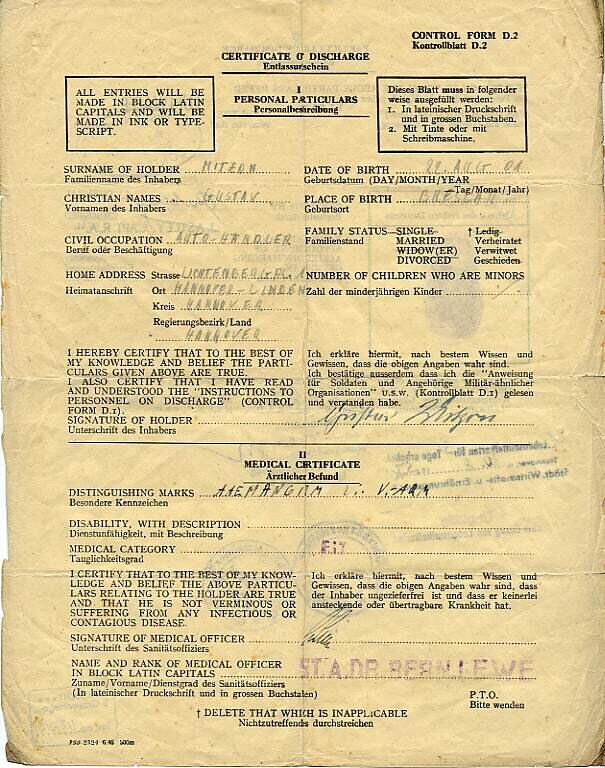 CONTROL FORM D.2
Kontrollblatt D.2
CERTIFICATE OF DISCHARGE
Entlassurschein
I
PERSONAL PARTICULARS
Personalbeschreibung
ALL ENTRIES WILL BE
MADE IN BLOCK LATIN
CAPITALS AND WILL BE
MADE IN INK OR TYPE-
SCRIPT.
Dieses Blatt muss in folgender
weise ausgefüllt werden:
1. In lateinischer Druckschrift
und in grossen Buchstaben.
2. Mit Tinte oder mit
Schreibmaschine.
SURNAME OF HOLDER MITZON
Familienname des Inhabers
CHRISTIAN NAMES GUSTAV
Vornamen des Inhabers
CIVIL OCCUPATION AUTO-HÄNDLER
Beruf oder Beschäftigung
HOME ADDRESS Strasse LICHTENBERGPL.
Heimatanschrift Ort HANNOVER-LINDEN
Kreis HANNOVER
Regierungsbezirk/Land
HANNOVER
DATE OF BIRTH 22. AUG. 01
Geburtsdatum (DAY/MONTH/YEAR
Tag/Monat/Jahr)
PLACE OF BIRTH BRESLAU
Geburtsort
FAMILY STATUS—SINGLE † Ledig
Familienstand MARRIED Verheiratet
WIDOW(ER) Verwitwet
DIVORCED Geschieden
NUMBER OF CHILDREN WHO ARE MINORS
Zahl der minderjährigen Kinder
I HEREBY CERTIFY THAT TO THE BEST OF
MY KNOWLEDGE AND BELIEF THE PARTI-
CULARS GIVEN ABOVE ARE TRUE.
I ALSO CERTIFY THAT I HAVE READ
AND UNDERSTOOD THE "INSTRUCTIONS TO
PERSONNEL ON DISCHARGE" (CONTROL
FORM D.1).
SIGNATURE OF HOLDER
Unterschrift des Inhabers
Ich erkläre hiermit, nach bestem Wissen und
Gewissen, dass die obigen Angaben wahr sind.
Ich bestätige ausserdem dass ich die "Anweisung
für Soldaten und Angehörige Militär-ähnlicher
Organisationen" u.s.w. (Kontrollblatt D.1) gelesen
und verstanden habe.
Gustav Mitzon
II
MEDICAL CERTIFICATE
Ärztlicher Befund
DISTINGUISHING MARKS
Besondere Kennzeichen
DISABILITY, WITH DESCRIPTION
Dienstunfähigkeit, mit Beschreibung
MEDICAL CATEGORY
Tauglichkeitsgrad
I CERTIFY THAT TO THE BEST OF MY KNOW-
LEDGE AND BELIEF THE ABOVE PARTICU-
LARS RELATING TO THE HOLDER ARE TRUE
AND THAT HE IS NOT VERMINOUS OR
SUFFERING FROM ANY INFECTIOUS OR
CONTAGIOUS DISEASE.
Ich erkläre hiermit, nach bestem Wissen und
Gewissen, dass die obigen Angaben wahr sind, dass
der Inhaber ungeziefertfrei ist und dass er keinerlei
ansteckende oder übertragbare Krankheit hat.
SIGNATURE OF MEDICAL OFFICER
Unterschrift des Sanitätsoffiziers
NAME AND RANK OF MEDICAL OFFICER
IN BLOCK LATIN CAPITALS ST.A.DR. BERN.LEWE
Zuname/Vorname/Dienstgrad des Sanitätsoffiziers
(In lateinischer Druckschrift und in grossen Buchstalen)
P.T.O.
Bitte wenden
† DELETE THAT WHICH IS INAPPLICABLE
Nichtzutreffends durchstreichen